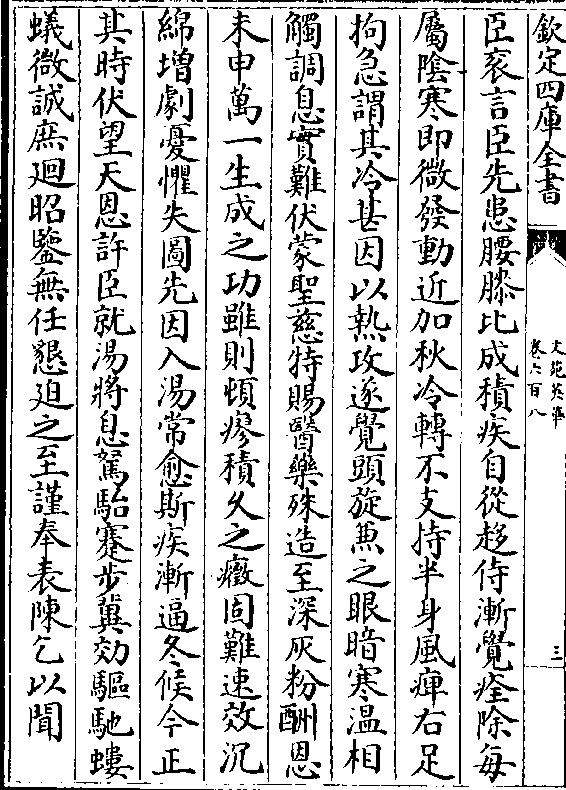 欽定四庫全書
文苑英華
卷六百八
三
臣衮言臣先患腰膝比成積疾自從趍侍漸覺痊除每
屬陰寒即微發動近加秋冷轉不支持半身風痺右足
拘急謂其冷甚因以熱攻遂覺頭旋兼之眼暗寒溫相
觸調息實難伏蒙聖慈特賜醫藥殊造至深灰粉酬恩
未申萬一生成之功雖則頓瘳積久之癥固難速效沉
綿增劇憂懼失圖先因入湯常愈斯疾漸逼冬候今正
其時伏望天恩許臣就湯將息駑駘蹇步冀効驅馳螻
蟻微誠庶廻昭鑒無任懇迫之至謹奉表陳乞以聞